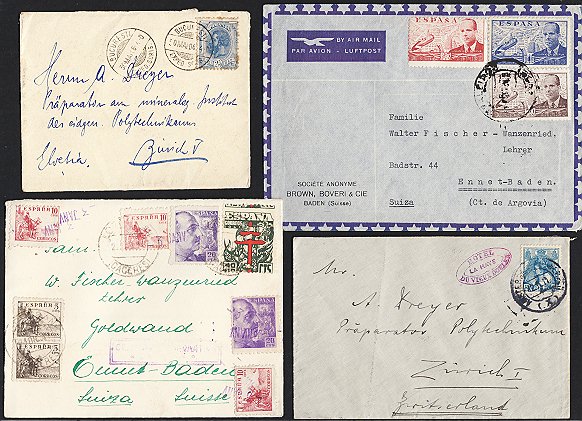 BUCURESTI
BUCURESTI
Herrn A. Dreyer
Präparator am mineralog. Institut
des eidgen. Polytechnikums
Zürich V
Elvetia
BY AIR MAIL
PAR AVION - LUFTPOST
ESPAÑA
ESPAÑA
Familie
Walter Fischer-Wanzenried,
Lehrer
Badstr. 44
Ennet-Baden.
Suiza (Ct. de Argovia)
SOCIÉTÉ ANONYME
BROWN, BOVERI & CIE
BADEN (Suisse)
ESPAÑA 10
ESPAÑA 10
20
ESPAÑA
Fam.
W. Fischer-Wanzenried
Lehrer
Goldwand
Ennet-Baden
Suiza Suisse
ESPAÑA 5
ESPAÑA 5
20
10
HOTEL
LA HAYE
DU VIEUX DOELEN
Mr.
A. Dreyer
Präparator Polytechnikum
Zürich I
Zwitserland